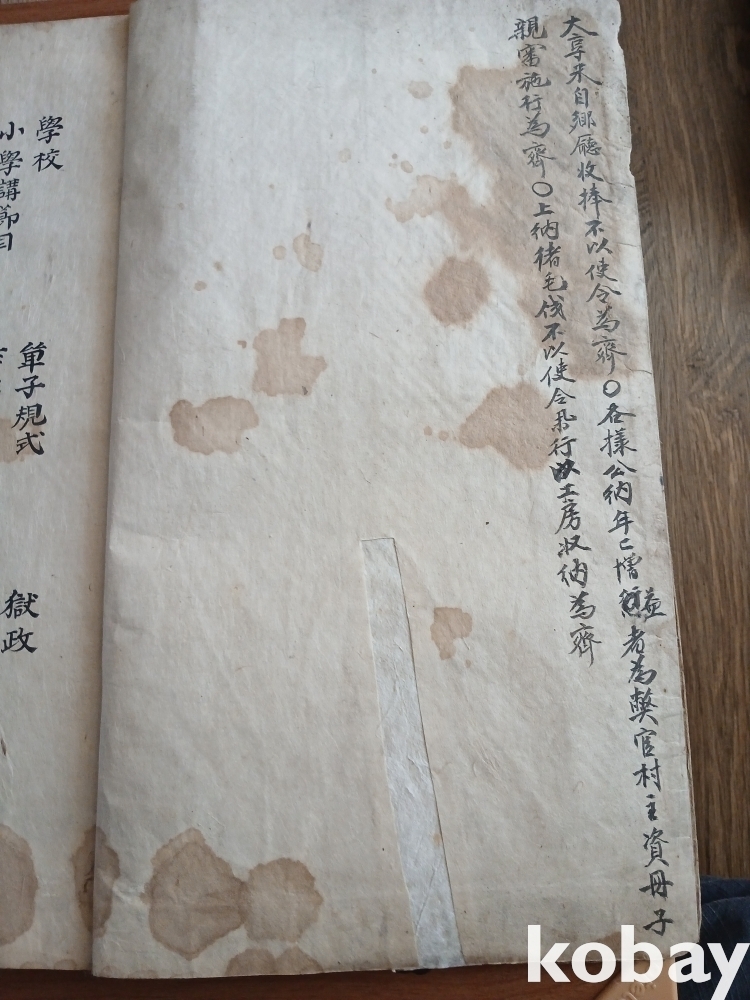 大享米自鄕廳收捧不以使令為齊○各樣公納年已增益者為獘官村主資冊子
親審施行為齊○上納猪毛伐不以使令氶行以工房收納為齊
學校
單子規式
獄政
小學講節目
kobay